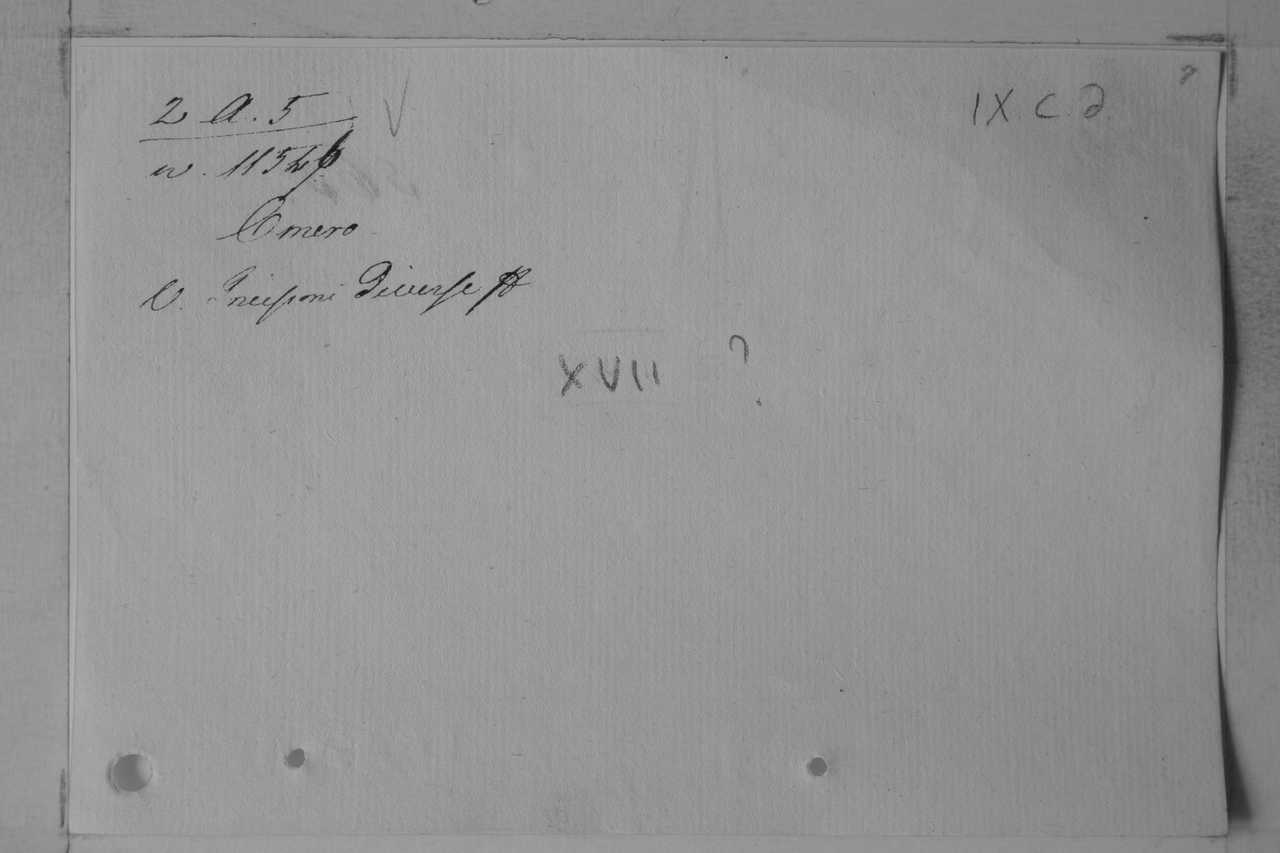 2 A. 5 V IX. C. 2.
n. 1154
Omero
V. Incisioni Diverse
XVII ?